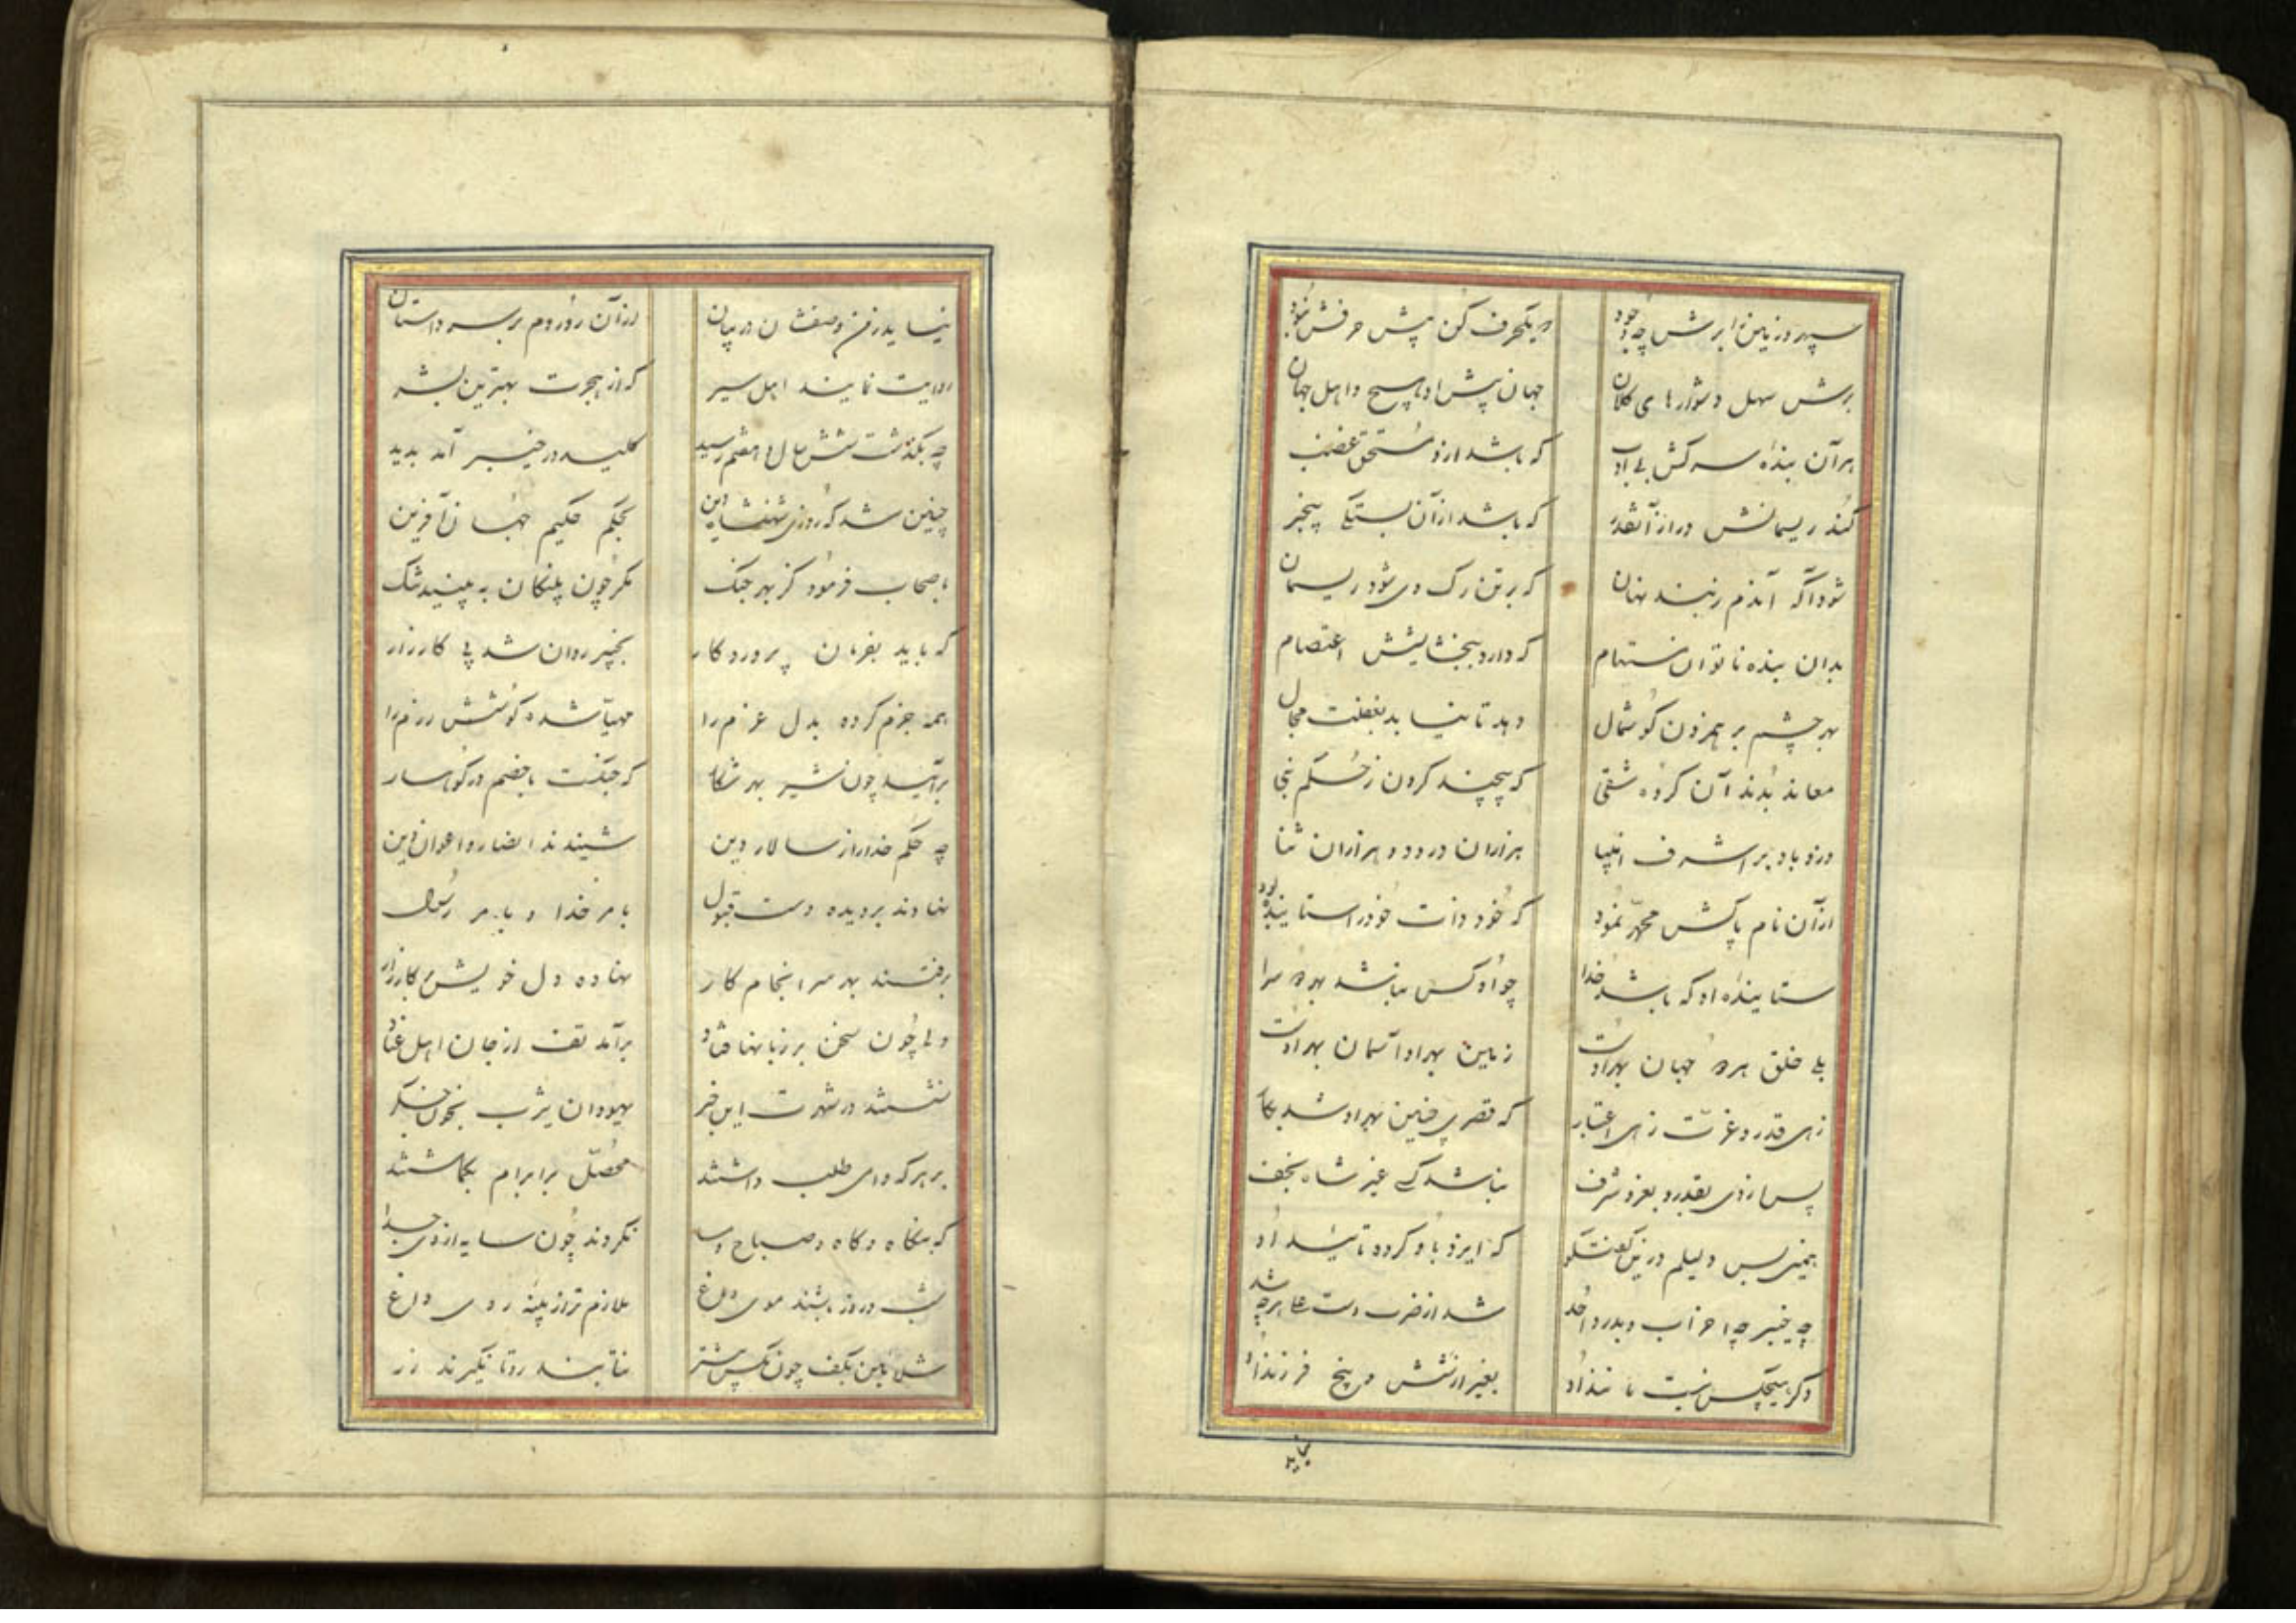 سپهر و زمین را برش چه بود که یکحرف کن پیش حرفش نبود
برش سهل دشوارهای کلان جهان پیش او هیچ و اهل جهان
هر آن بنده سرکش بی ادب که باشد ازو مستحق غضب
کند ریسمانش دراز آنقدر که باشد از آن بستگی بیخبر
شود آگه آندم ز بند نهان که بر تن رگ وی شود ریسمان
بدان بنده ناتوان مستهام که دارد ببخشایشش اعتصام
بهر چشم بر همزدن گوشمال دهد تا نیابد بغفلت مجال
معاند بدند آن گروه شقی که پیچند گردن ز حکم نبی
درود باد بر اشرف انبیا هزاران درود و هزاران ثنا
از آن نام پاکش محمد نمود که خود ذات خود را ستاینده بود
ستاینده او که باشد خدا چو او کس نباشد بهر دو سرا
بلی خلق هر دو جهان بهر اوست زمین بهر او آسمان بهر اوست
زهی قدر و عزت زهی اعتبار که قصری چنین بهر او شد بکار
پس از وی بقدر و بعز و شرف نباشد کسی غیر شاه نجف
همینم بس دلیلم درین گفتگو که ایزد باو کرده تائید او
چه خیبر چه احزاب و بدر و احد شد از ضرب دست علی هر چه شد
دگر هیچکس نیست مانند او بغیر از شش و پنج فرزند او
نیاید
نیاید در فن وصفشان در بیان از آن رو روم بر سر داستان
روایت نمایند اهل سیر که از هجرت بهترین بشر
چه بگذشت شش سال و هفتم رسید کلید در خیبر آمد پدید
چنین شد که روزی شهنشاه دین بحکم حکیم جهان آفرین
باصحاب فرمود کز بهر جنگ کمر چون پلنگان ببندید تنگ
که باید بفرمان پروردگار بخیبر روان شد پی کارزار
همه جزم کرده بدل عزم را مهیا شده کوشش رزم را
برآیید چون شیر بهر شکار که جنگست با خصم در کوهسار
چه حکم خدا را ز سالار دین شنیدند انصار و اعوان دین
نهادند بر دیده دست قبول بامر خدا و بامر رسول
برفتند بهر سرانجام کار نهاده دل خویش بر کارزار
ولی چون سخن بر زبانها فتاد برآمد تف از جان اهل عناد
نشستند در شهرت این خبر یهودان یثرب بخون جگر
بر هر که وامی طلب داشتند محصل بر ابرام بگماشتند
که بیگاه و گاه و صباح و مسا نگردند چون سایه از وی جدا
شب و روز باشند موی دماغ ملازم تر از پنبه روی داغ
نتابند رو تا نگیرند زر